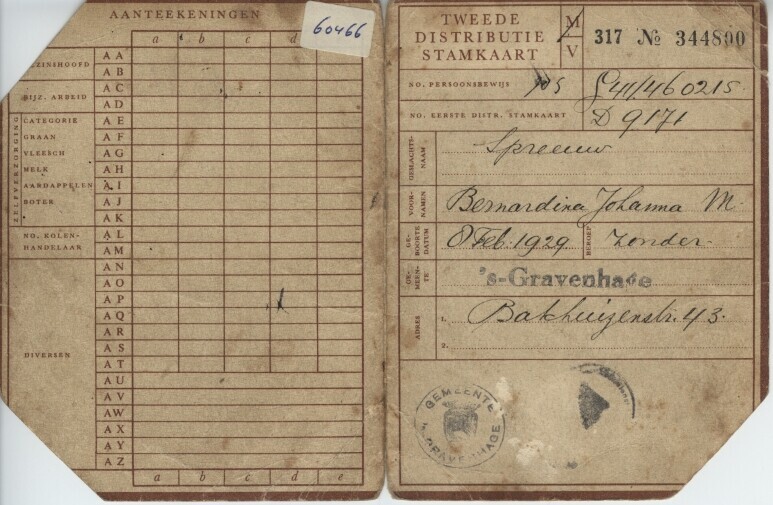 AANTEEKENINGEN
60466
a b c d
GEZINSHOOFD
BIJZ. ARBEID
ZELFVERZORGING
CATEGORIE
GRAAN
VLEESCH
MELK
AARDAPPELEN
BOTER
NO. KOLEN-
HANDELAAR
DIVERSEN
AA
AB
AC
AD
AE
AF
AG
AH
AI
AJ
AK
AL
AM
AN
AO
AP
AQ
AR
AS
AT
AU
AV
AW
AX
AY
AZ
a b c d e
TWEEDE
DISTRIBUTIE
STAMKAART
M
V
317 № 344800
NO. PERSOONSBEWIJS
41/460215
NO. EERSTE DISTR. STAMKAART
D 9171
GESLACHTS-
NAAM
Spreeuw
VOOR-
NAMEN
Bernardina Johanna M.
GE-
BOORTE
DATUM
8 Feb. 1929
BEROEP
Zonder.
GE-
MEEN-
TE
's-Gravenhage
ADRES
1. Bakhuizenstr. 43.
2.
GEMEENTE
's-GRAVENHAGE